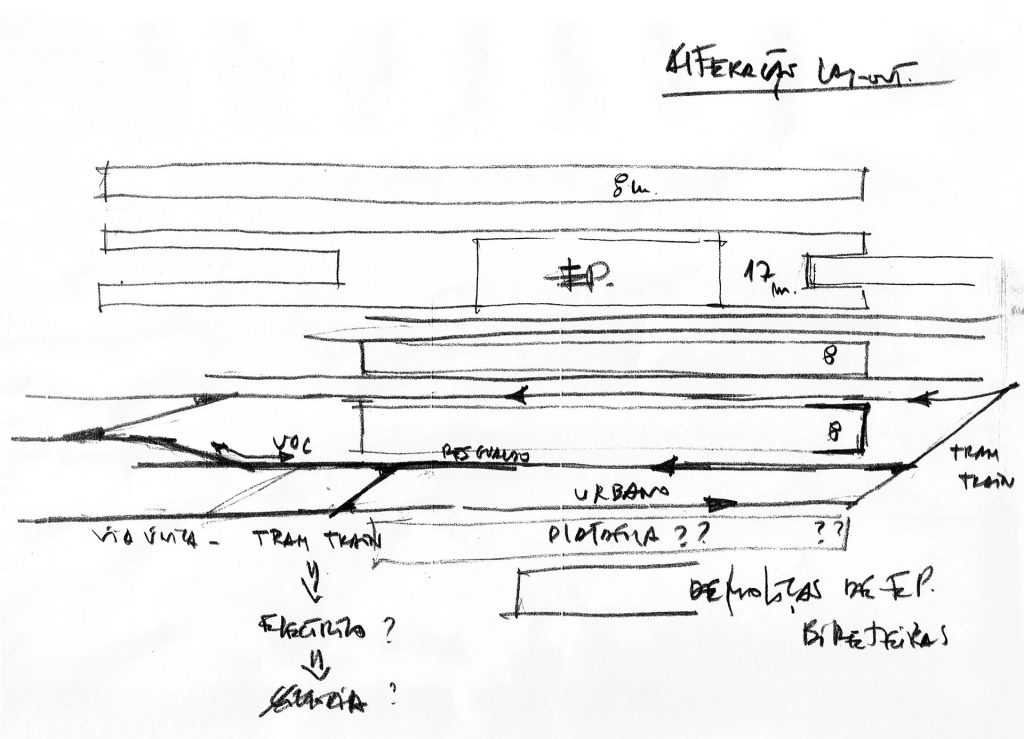 ALTERAÇÃO LAY-OUT.
8 m.
E.P.
17 m.
8
8
VOC
RESGUARDO
TRAM
TRAIN
URBANO
VIA ÚNICA - TRAM TRAIN
??
??
DEMOLIÇÃO DE E.P.
BILHETEIRAS
ELECTRICO ?
?